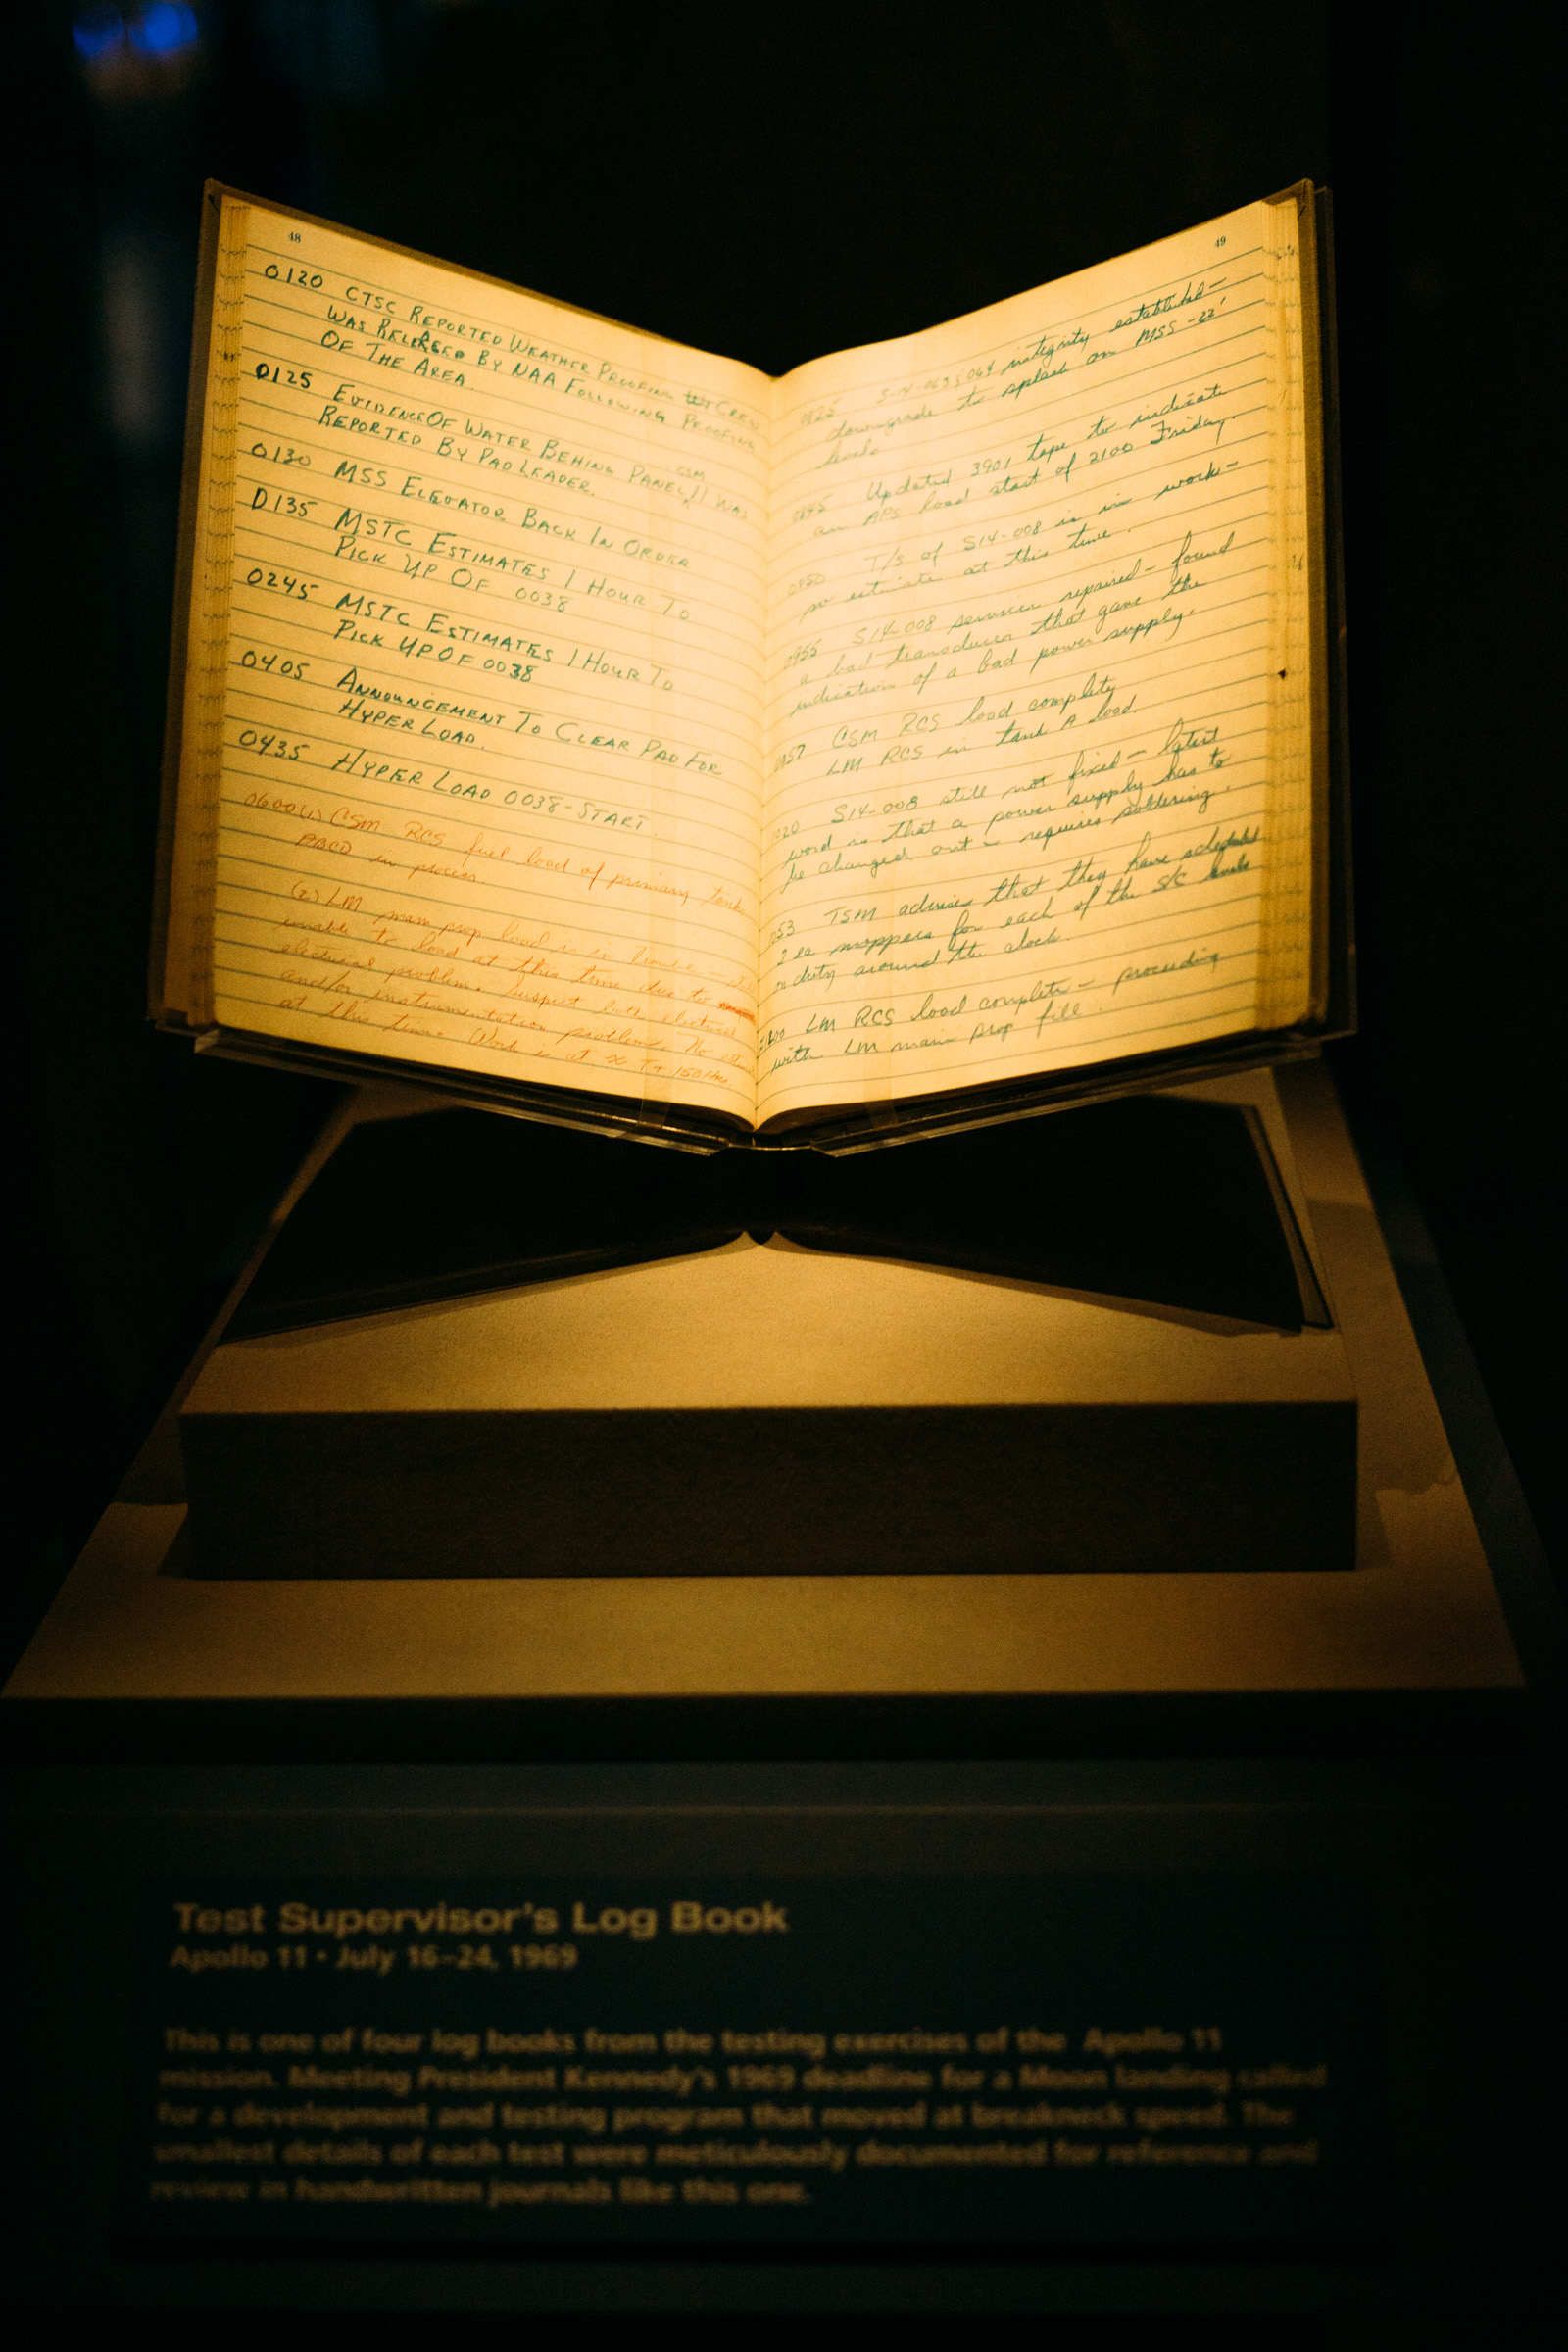 48
0120 CTSC REPORTED WEATHER PROOFING CREW
WAS RELEASED BY NAA FOLLOWING PROOFING
OF THE AREA.
0125 EVIDENCE OF WATER BEHING PANEL CSM 11 WAS
REPORTED BY PAD LEADER.
0130 MSS ELEVATOR BACK IN ORDER
0135 MSTC ESTIMATES 1 HOUR TO
PICK UP OF 0038
0245 MSTC ESTIMATES 1 HOUR TO
PICK UP OF 0038
0405 ANNOUNCEMENT TO CLEAR PAD FOR
HYPER LOAD.
0435 HYPER LOAD 0038-START.
0600 (1) CSM RCS fuel load of primary tanks
ABCD in process.
(2) LM main prop load is in trouble -
unable to load at this time due to
electrical problem. Suspect both electrical
and/or instrumentation problem. No
at this time. Work is at ≈ T-150 Hrs.
49
S-14-063 & 064 integrity established-
downgrade to splash on MSS -22'
levels
Updated 3901 tape to indicate
an APS load start of 2100 Friday.
T/S of S14-008 is in work-
no estimate at this time.
0955 S14-008 servicer repaired - found
a bad transducer that gave the
indication of a bad power supply.
CSM RCS load complete
LM RCS in tank A load.
1020 S14-008 still not fixed - latest
word is that a power supply has to
be changed out - requires soldering.
TSM advises that they have scheduled
2 ea moppers for each of the S/C levels
on duty around the clock.
LM RCS load complete - proceeding
with LM main prop fill.
Test Supervisor's Log Book
Apollo 11 • July 16-24, 1969
This is one of four log books from the testing exercises of the Apollo 11
mission. Meeting President Kennedy's 1969 deadline for a Moon landing called
for a development and testing program that moved at breakneck speed. The
smallest details of each test were meticulously documented for reference and
review in handwritten journals like this one.